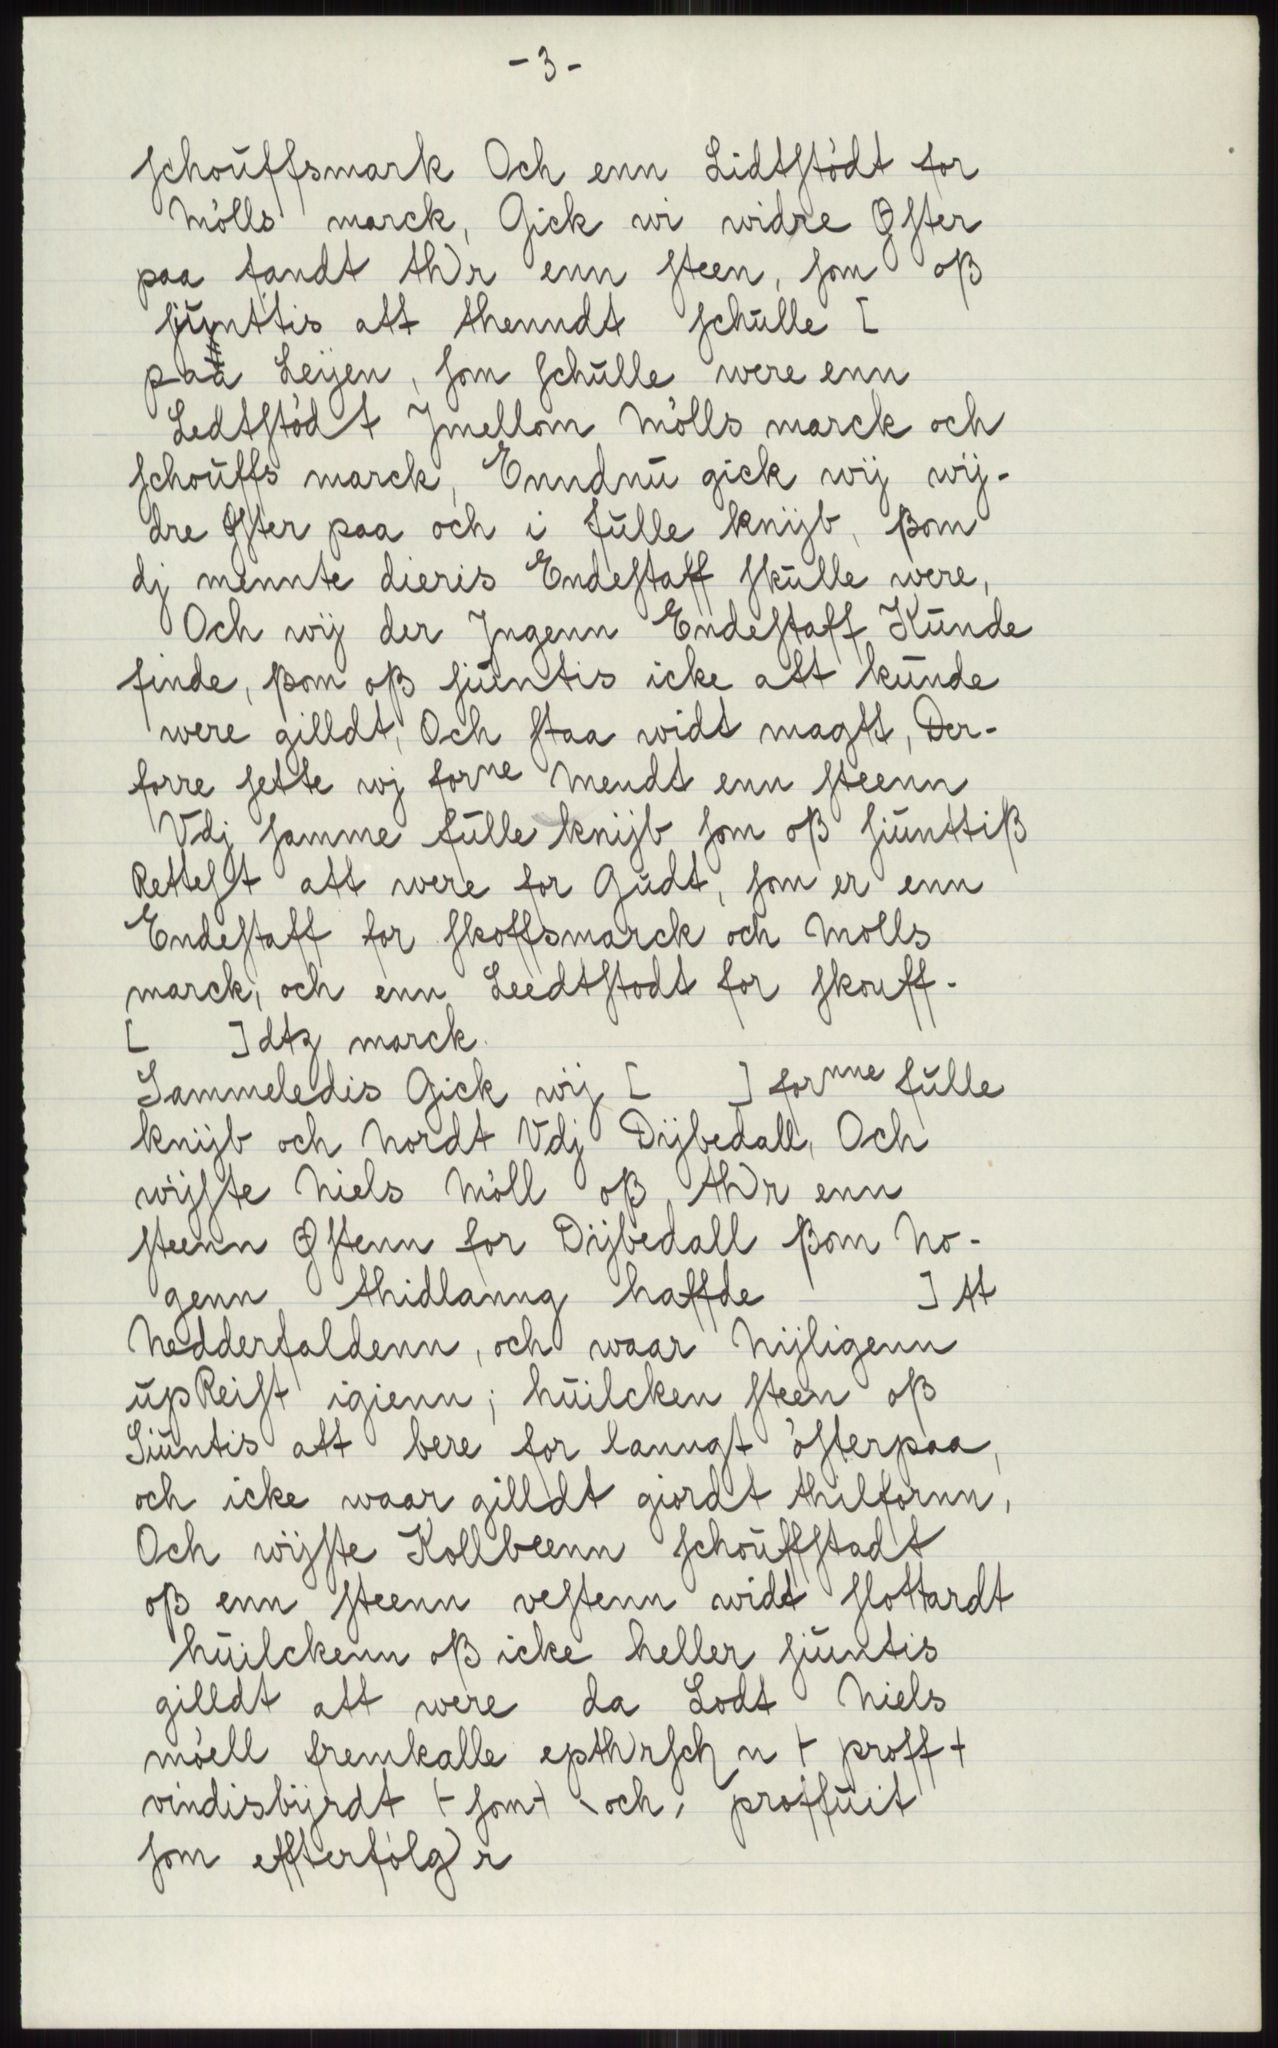 -3-
schouffsmark Och enn Lidtstódt for
Mólls marck, Gick wi widre Øster
paa fandt th)r enn steen, som oß
siunttis att thenndt schulle [
paa Leijen, som schulle were enn
Ledtstódt Jmellom Mólls marck och
schouffs marck, Enndnu gick wij wij-
dre Øster paa och i fulle knijb, ßom
dj mennte dieris Endestaff skulle were,
Och wij der Jngenn Endestaff Kunde
finde, ßom oß siuntis icke att kunde
were gilldt, Och staa widt magtt, Der-
forre sette wj forne Mendt enn steenn
Vdj samme fulle knijb som oß siunttiß
Rettest att were for Gudt, som er enn
Endestaff for skoffsmarck och Molls
marck, och enn Leedtstodt for skouff-
[ ] dtz marck.
Sammeledis Gick wij [ ] fornne fulle
knijb och Nordt Vdj Dijbedall, Och
wijste Niels Móll oß th)r enn
steenn Østenn for Dijbedall ßom No-
genn thidlanng haffde ] tt
Nedderfaldenn, och waar Nijligenn
upReist igienn; huilcken steen oß
Siuntis att bere for lanngt ósterpaa,
och icke waar gilldt giordt thilfornn,
Och wijste Kollbeenn schouffstadt
oß enn steenn vestenn widt slottardt
huilckenn oß icke heller siuntis
gilldt att were da Lodt Niels
móell fremkalle epth)rsch n + proff +
vindisbijrdt + som + \ och, proffuit
som effterfólg)r